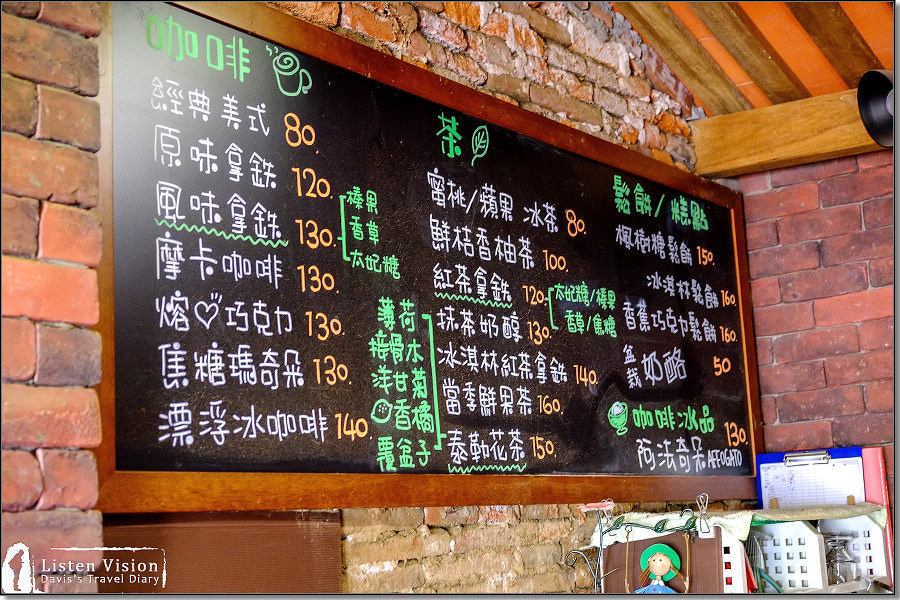 咖啡
經典美式 80.
原味拿鉄 120.
風味拿鉄 130.
榛果
香草
太妃糖
摩卡咖啡 130.
熔♡巧克力 130.
焦糖瑪奇朵 130.
漂浮冰咖啡 140.
茶
蜜桃/蘋果 冰茶 80.
鮮桔香柚茶 100.
紅茶拿鉄 120.
太妃糖/榛果
香草/焦糖
抹茶奶醇 130.
冰淇林紅茶拿鉄 140.
當季鮮果茶 160.
泰勒花茶 150.
薄荷
接骨木
洋甘菊
香橘
覆盆子
鬆餅/糕點
楓樹糖鬆餅 150.
冰淇林鬆餅 160.
香蕉巧克力鬆餅 160.
盆栽奶酪 50
咖啡冰品
阿法奇朵 AFFOGATO 130.
Listen Vision
Davis's Travel Diary